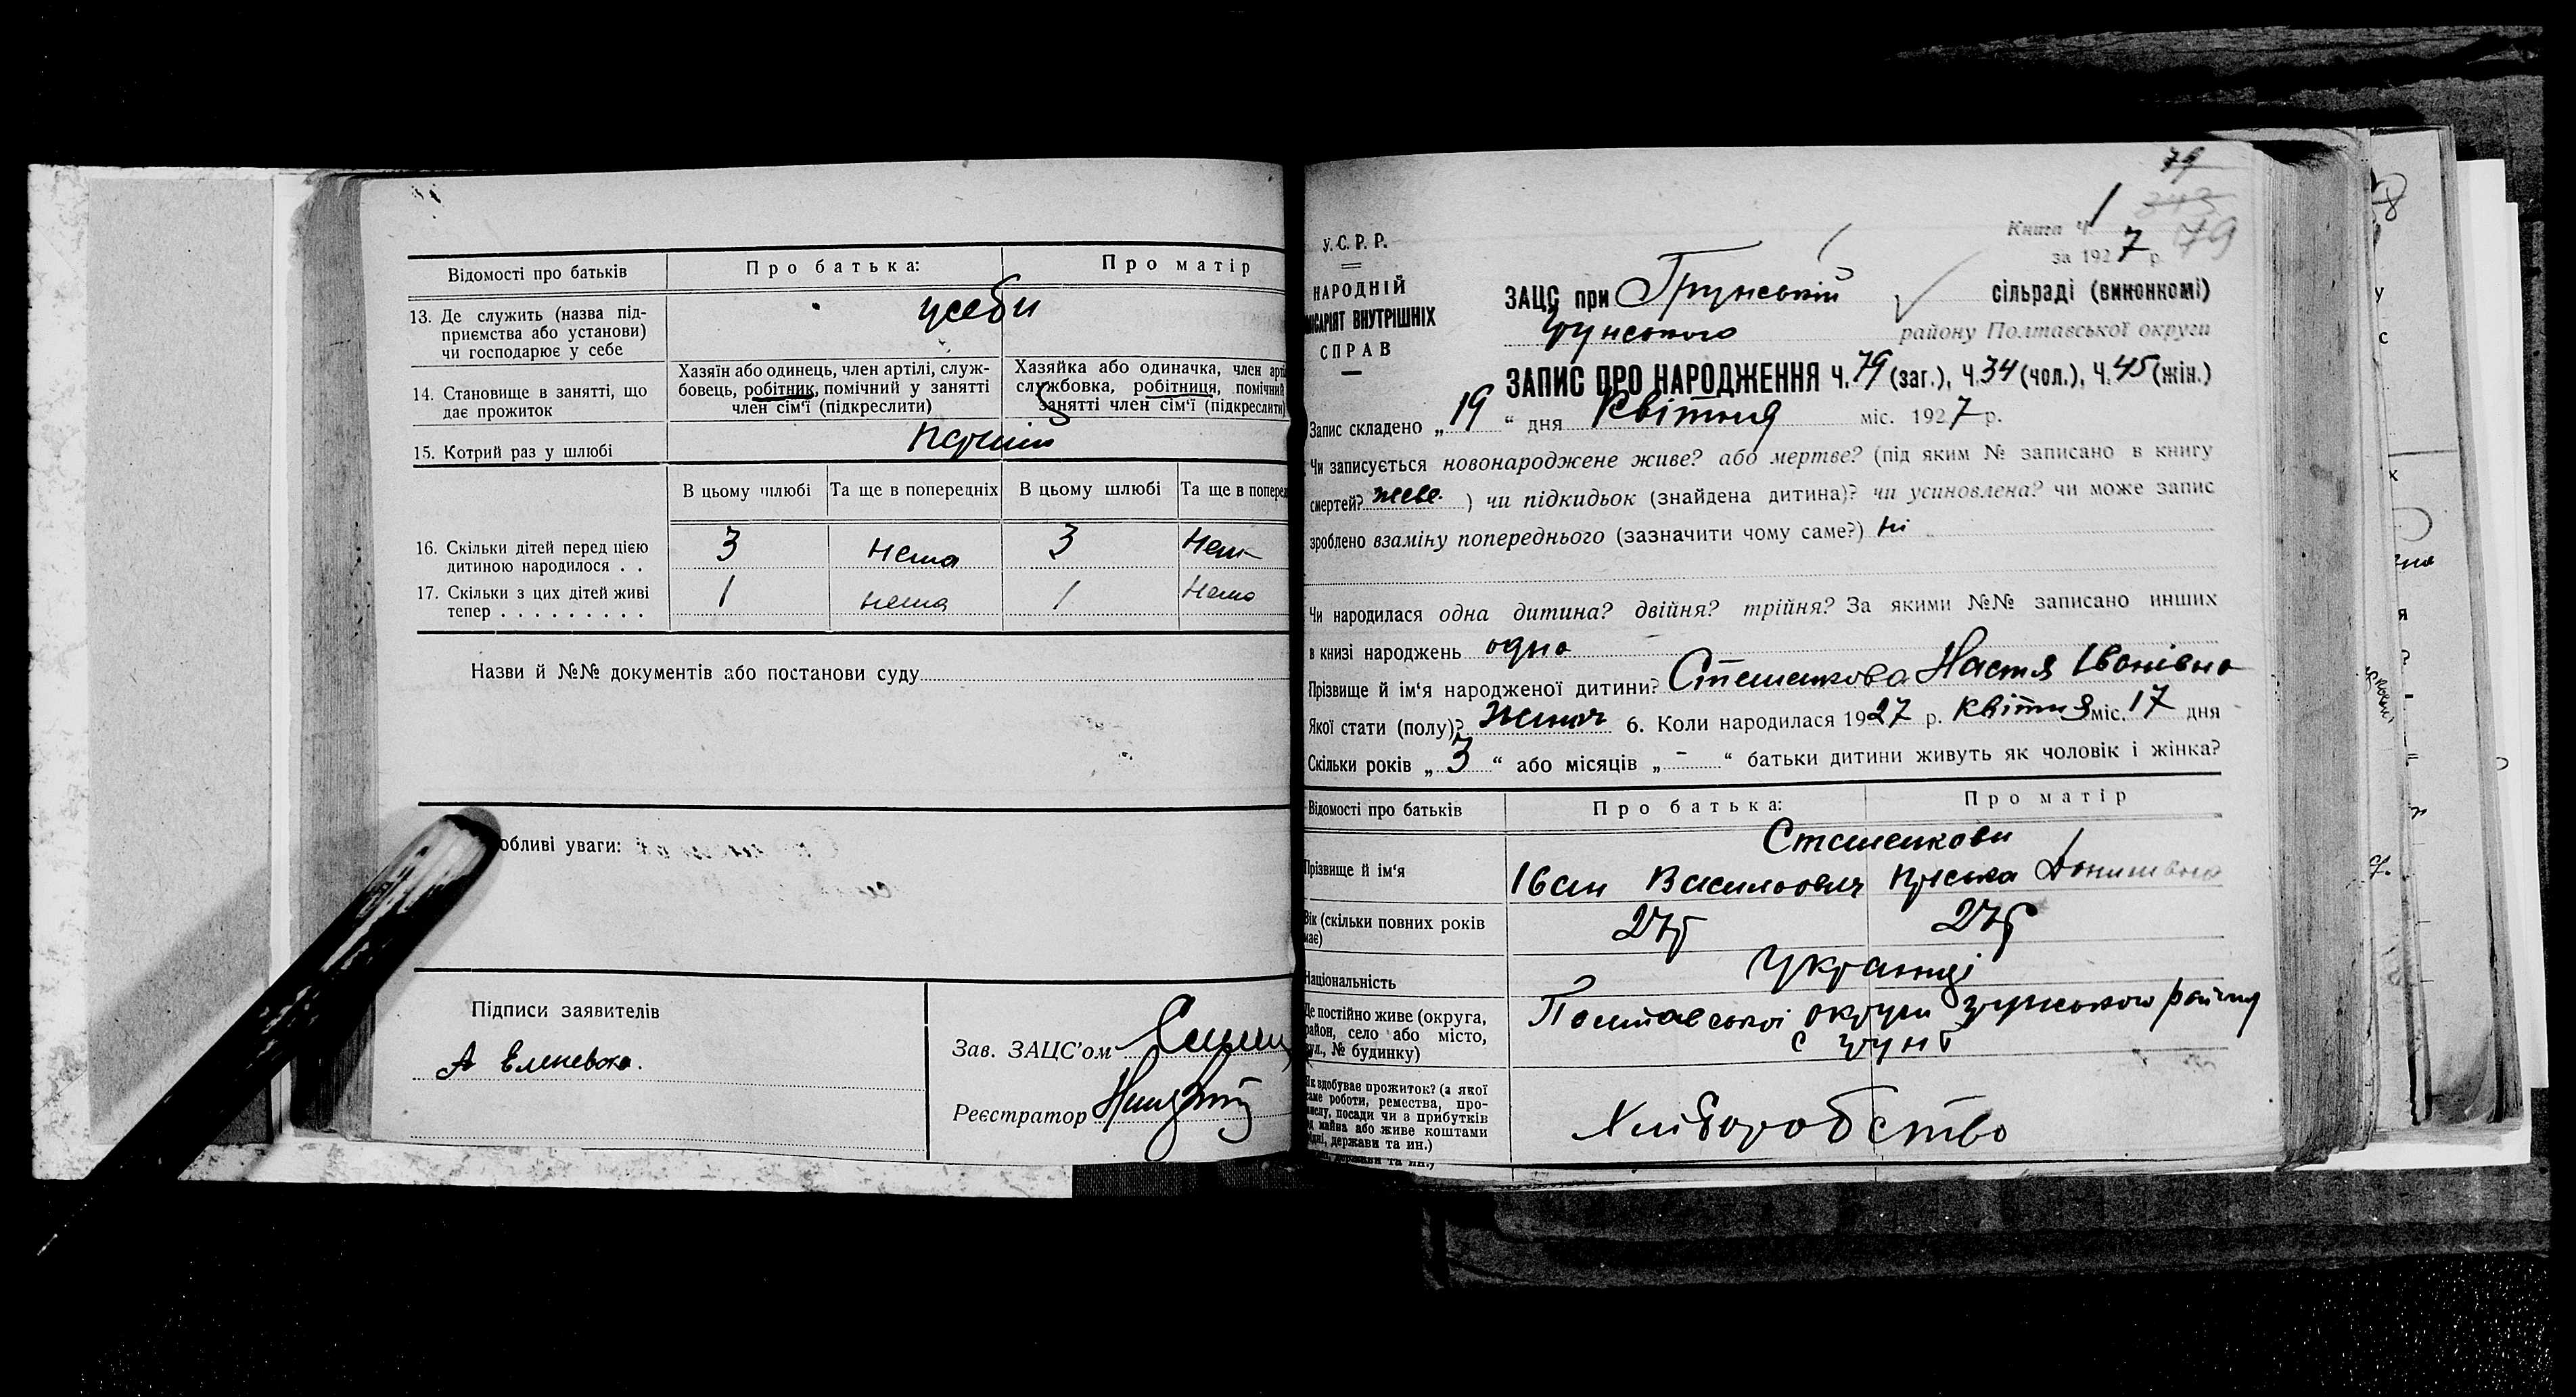 Відомості про батьків
Про батька:
Про матір
13. Де служить (назва під-
приємства або установи)
чи господарює у себе
усеби
14. Становище в занятті, що
дає прожиток
Хазяїн або одинець, член артілі, служ-
бовець, робітник, помічний у занятті
член сім'ї (підкреслити)
Хазяйка або одиначка, член арті
службовка, робітниця, помічний
занятті член сім'ї (підкреслити)
15. Котрий раз у шлюбі
перший
В цьому шлюбі
Та ще в попередніх
В цьому шлюбі
Та ще в поперед
16. Скільки дітей перед цією
дитиною народилося . .
3 нема 3 нема
17. Скільки з цих дітей живі
тепер . . . . . . . . .
1 нема 1 нема
Назви й №№ документів або постанови суду
обливі уваги:
Підписи заявителів
Зав. ЗАЦС'ом
Реєстратор
79
343
Книга Ч. 1
79
за 1927 р.
У.С.Р.Р.
НАРОДНІЙ
ІСАРІЯТ ВНУТРІШНІХ
СПРАВ
ЗАЦС при Грунській сільраді (виконкомі)
Грунського району Полтавської округи
ЗАПИС ПРО НАРОДЖЕННЯ Ч. 79 (заг.), Ч. 34 (чол.), Ч. 45 (жін.)
Запис складено „ 19 “ дня Квітня міс. 1927 р.
Чи записується новонароджене живе? або мертве? (під яким № записано в книгу
смертей? живе ) чи підкидьок (знайдена дитина)? чи усиновлена? чи може запис
зроблено взаміну попереднього (зазначити чому саме?) ні
Чи народилася одна дитина? двійня? трійня? За якими №№ записано инших
в книзі народжень одно
Прізвище й ім'я народженої дитини? Стешенкова Настя Іванівна
Якої стати (полу)? 6. Коли народилася 1927 р. квітня міс. 17 дня
Скільки років „ 3 “ або місяців „ - “ батьки дитини живуть як чоловік і жінка?
Відомості про батьків
Про батька:
Про матір
Прізвище й ім'я
Стешенкови
Іван Васильович Пріська
Вік (скільки повних років
має)
27р 27р
Національність
Українці
Де постійно живе (округа,
район, село або місто,
вул., № будинку)
Полтавської округи Грунського району
с Грунь
Як здобуває прожиток? (з якої
саме роботи, ремества, про-
мислу, посади чи з прибутків
од майна або живе коштами
рідні, держави та ин.)
Хліборобство